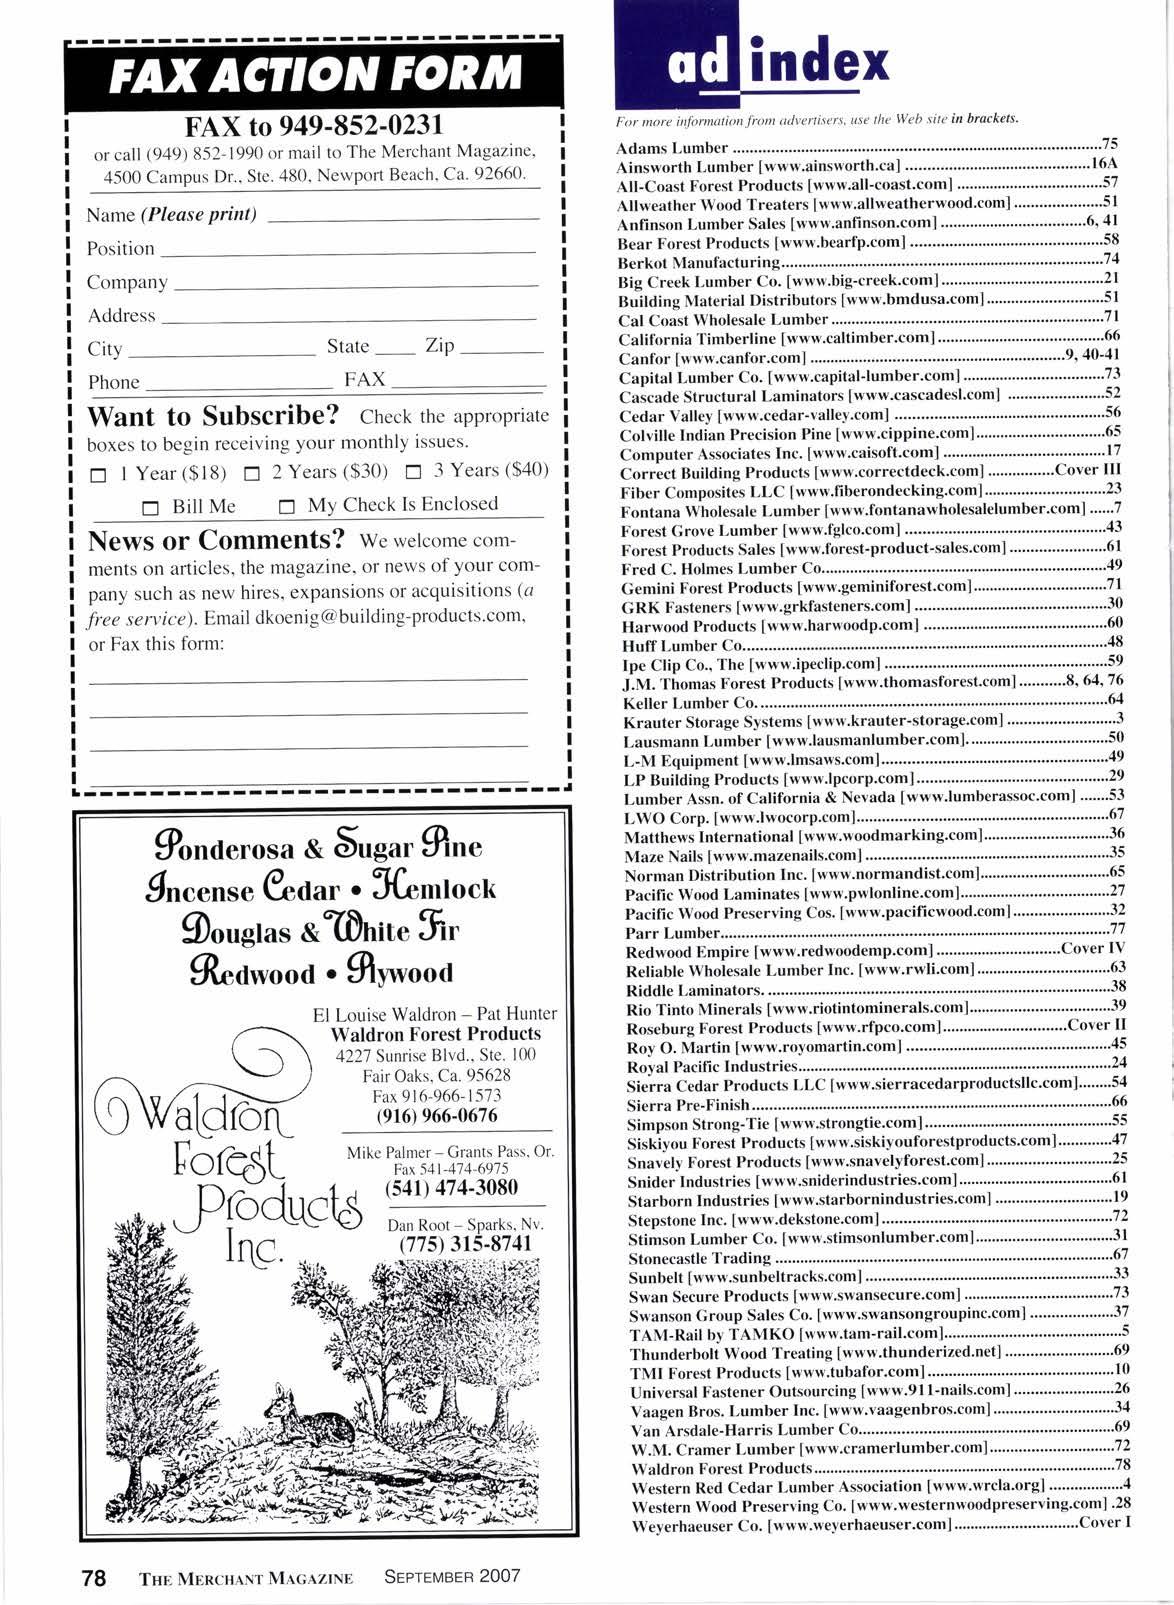 FAX ACTION FORM
FAX to 949-852-0231
or call (949) 852-1990 or mail to The Merchant Magazine,
4500 Campus Dr., Ste. 480, Newport Beach, Ca. 92660.
Name (Please print)
Position
Company
Address
City State Zip
Phone FAX
Want to Subscribe? Check the appropriate
boxes to begin receiving your monthly issues.
1 Year ($18) 2 Years ($30) 3 Years ($40)
Bill Me My Check Is Enclosed
News or Comments? We welcome com-
ments on articles, the magazine, or news of your com-
pany such as new hires, expansions or acquisitions (a
free service). Email dkoenig@building-products.com,
or Fax this form:
Ponderosa & Sugar Pine
Incense Cedar • Hemlock
Douglas & White Fir
Redwood • Plywood
El Louise Waldron – Pat Hunter
Waldron Forest Products
4227 Sunrise Blvd., Ste. 100
Fair Oaks, Ca. 95628
Fax 916-966-1573
(916) 966-0676
Mike Palmer – Grants Pass, Or.
Fax 541-474-6975
(541) 474-3080
Dan Root – Sparks, Nv.
(775) 315-8741
Waldron
Forest
Products
Inc.
ad index
For more information from advertisers, use the Web site in brackets.
Adams Lumber 75
Ainsworth Lumber [www.ainsworth.ca] 16A
All-Coast Forest Products [www.all-coast.com] 57
Allweather Wood Treaters [www.allweatherwood.com] 51
Anfinson Lumber Sales [www.anfinson.com] 6, 41
Bear Forest Products [www.bearfp.com] 58
Berkot Manufacturing 74
Big Creek Lumber Co. [www.big-creek.com] 21
Building Material Distributors [www.bmdusa.com] 51
Cal Coast Wholesale Lumber 71
California Timberline [www.caltimber.com] 66
Canfor [www.canfor.com] 9, 40-41
Capital Lumber Co. [www.capital-lumber.com] 73
Cascade Structural Laminators [www.cascadesl.com] 52
Cedar Valley [www.cedar-valley.com] 56
Colville Indian Precision Pine [www.cippine.com] 65
Computer Associates Inc. [www.caisoft.com] 17
Correct Building Products [www.correctdeck.com] Cover III
Fiber Composites LLC [www.fiberondecking.com] 23
Fontana Wholesale Lumber [www.fontanawholesalelumber.com] 7
Forest Grove Lumber [www.fglco.com] 43
Forest Products Sales [www.forest-product-sales.com] 61
Fred C. Holmes Lumber Co. 49
Gemini Forest Products [www.geminiforest.com] 71
GRK Fasteners [www.grkfasteners.com] 30
Harwood Products [www.harwoodp.com] 60
Huff Lumber Co. 48
Ipe Clip Co., The [www.ipeclip.com] 59
J.M. Thomas Forest Products [www.thomasforest.com] 8, 64, 76
Keller Lumber Co. 64
Krauter Storage Systems [www.krauter-storage.com] 3
Lausmann Lumber [www.lausmanlumber.com]. 50
L-M Equipment [www.lmsaws.com] 49
LP Building Products [www.lpcorp.com] 29
Lumber Assn. of California & Nevada [www.lumberassoc.com] 53
LWO Corp. [www.lwocorp.com] 67
Matthews International [www.woodmarking.com] 36
Maze Nails [www.mazenails.com] 35
Norman Distribution Inc. [www.normandist.com] 65
Pacific Wood Laminates [www.pwlonline.com] 27
Pacific Wood Preserving Cos. [www.pacificwood.com] 32
Parr Lumber 77
Redwood Empire [www.redwoodemp.com] Cover IV
Reliable Wholesale Lumber Inc. [www.rwli.com] 63
Riddle Laminators. 38
Rio Tinto Minerals [www.riotintominerals.com] 39
Roseburg Forest Products [www.rfpco.com] Cover II
Roy O. Martin [www.royomartin.com] 45
Royal Pacific Industries 24
Sierra Cedar Products LLC [www.sierracedarproductsllc.com] 54
Sierra Pre-Finish 66
Simpson Strong-Tie [www.strongtie.com] 55
Siskiyou Forest Products [www.siskiyouforestproducts.com] 47
Snavely Forest Products [www.snavelyforest.com] 25
Snider Industries [www.sniderindustries.com] 61
Starborn Industries [www.starbornindustries.com] 19
Stepstone Inc. [www.dekstone.com] 72
Stimson Lumber Co. [www.stimsonlumber.com] 31
Stonecastle Trading 67
Sunbelt [www.sunbeltracks.com] 33
Swan Secure Products [www.swansecure.com] 73
Swanson Group Sales Co. [www.swansongroupinc.com] 37
TAM-Rail by TAMKO [www.tam-rail.com] 5
Thunderbolt Wood Treating [www.thunderized.net] 69
TMI Forest Products [www.tubafor.com] 10
Universal Fastener Outsourcing [www.911-nails.com] 26
Vaagen Bros. Lumber Inc. [www.vaagenbros.com] 34
Van Arsdale-Harris Lumber Co. 69
W.M. Cramer Lumber [www.cramerlumber.com] 72
Waldron Forest Products 78
Western Red Cedar Lumber Association [www.wrcla.org] 4
Western Wood Preserving Co. [www.westernwoodpreserving.com] 28
Weyerhaeuser Co. [www.weyerhaeuser.com] Cover I
78 THE MERCHANT MAGAZINE SEPTEMBER 2007